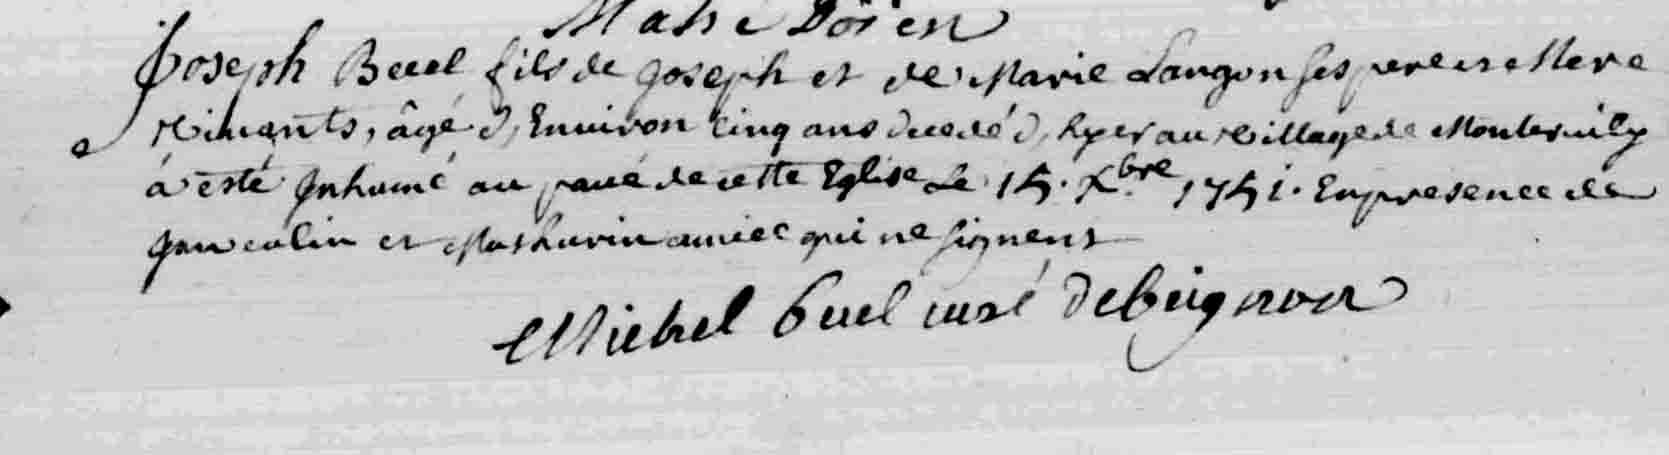 Joseph Buel fils de Joseph et de Marie Langon ses pere et Mere
vivants, âgé d'Environ cinq ans decedé d'hyer au village de
a esté Inhumé au pavé de cette Eglise Le 15. Xbre 1751. En presence de
Jan colin et Mathurin amice qui ne signent
Michel Buel curé de beignon